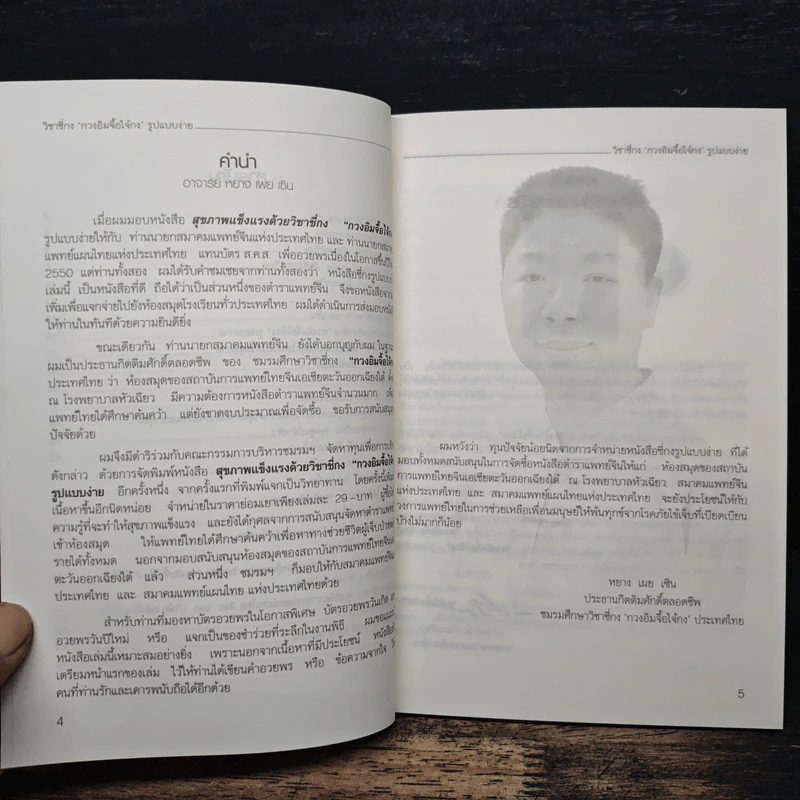 วิชาชี่กง "กวงอิมจื้อไจ้กง" รูปแบบง่าย
คำนำ
อาจารย์ หยาง เผย เซิน
เมื่อผมมอบหนังสือ สุขภาพแข็งแรงด้วยวิชาชี่กง "กวงอิมจื้อไจ้กง
รูปแบบง่ายให้กับ ท่านนายกสมาคมแพทย์จีนแห่งประเทศไทย และ ท่านนายกสมาค
แพทย์แผนไทยแห่งประเทศไทย แทนบัตร ส.ค.ส. เพื่ออวยพรเนื่องในโอกาสขึ้นปีให
2550 แด่ท่านทั้งสอง ผมได้รับคำชมเชยจากท่านทั้งสองว่า หนังสือชี่กงรูปแบบง่
เล่มนี้ เป็นหนังสือที่ดี ถือได้ว่าเป็นส่วนหนึ่งของตำราแพทย์จีน จึงขอหนังสือจาก
เพิ่มเพื่อแจกจ่ายไปยังห้องสมุดโรงเรียนทั่วประเทศไทย ผมได้ดำเนินการส่งมอบหนัง
ให้ท่านในทันทีด้วยความยินดียิ่ง
ขณะเดียวกัน ท่านนายกสมาคมแพทย์จีน ยังได้บอกบุญกับผม ในฐาน
ผมเป็นประธานกิตติมศักดิ์ตลอดชีพ ของ ชมรมศึกษาวิชาชี่กง "กวงอิมจื้อไจ้ก
ประเทศไทย ว่า ห้องสมุดของสถาบันการแพทย์ไทยจีนเอเชียตะวันออกเฉียงใต้ ตั้
ณ โรงพยาบาลหัวเฉียว มีความต้องการหนังสือตำราแพทย์จีนจำนวนมาก เพื่
แพทย์ไทยได้ศึกษาค้นคว้า แต่ยังขาดงบประมาณเพื่อจัดซื้อ ขอรับการสนับสนุ
ปัจจัยด้วย
ผมจึงมีดำริร่วมกับคณะกรรมการบริหารชมรมฯ จัดหาทุนเพื่อการบริ
ดังกล่าว ด้วยการจัดพิมพ์หนังสือ สุขภาพแข็งแรงด้วยวิชาชี่กง "กวงอิมจื้อไจ้
รูปแบบง่าย อีกครั้งหนึ่ง จากครั้งแรกที่พิมพ์แจกเป็นวิทยาทาน โดยครั้งนี้เพิ่ม
เนื้อหาขึ้นอีกนิดหน่อย จำหน่ายในราคาย่อมเยาเพียงเล่มละ 29.-บาท ผู้ซื้อไ
ความรู้ที่จะทำให้สุขภาพแข็งแรง และยังได้กุศลจากการสนับสนุนจัดหาตำราแพท
เข้าห้องสมุด ให้แพทย์ไทยได้ศึกษาค้นคว้าเพื่อหาทางช่วยชีวิตผู้เจ็บป่วยต่
รายได้ทั้งหมด นอกจากมอบสนับสนุนห้องสมุดของสถาบันการแพทย์ไทยจีนเอ
ตะวันออกเฉียงใต้ แล้ว ส่วนหนึ่ง ชมรมฯ ก็มอบให้กับสมาคมแพทย์จีน
ประเทศไทย และ สมาคมแพทย์แผนไทย แห่งประเทศไทยด้วย
สำหรับท่านที่มองหาบัตรอวยพรในโอกาสพิเศษ บัตรอวยพรวันเกิด
อวยพรวันปีใหม่ หรือ แจกเป็นของชำร่วยที่ระลึกในงานพิธี ผมขอแนะ
หนังสือเล่มนี้เหมาะสมอย่างยิ่ง เพราะนอกจากเนื้อหาที่มีประโยชน์ หนังสือ
เตรียมหน้าแรกของเล่ม ไว้ให้ท่านได้เขียนคำอวยพร หรือ ข้อความจากใจ
คนที่ท่านรักและเคารพนับถือได้อีกด้วย
4
วิชาชี่กง "กวงอิมจื้อไจ้กง" รูปแบบง่าย
ผมหวังว่า ทุนปัจจัยน้อยนิดจากการจำหน่ายหนังสือชี่กงรูปแบบง่าย ที่ได้
มอบทั้งหมดสนับสนุนในการจัดซื้อหนังสือตำราแพทย์จีนให้แก่ ห้องสมุดของสถาบัน
การแพทย์ไทยจีนเอเชียตะวันออกเฉียงใต้ ณ โรงพยาบาลหัวเฉียว, สมาคมแพทย์จีน
แห่งประเทศไทย และ สมาคมแพทย์แผนไทยแห่งประเทศไทย จะยังประโยชน์ให้กับ
วงการแพทย์ไทยในการช่วยเหลือเพื่อนมนุษย์ให้พ้นทุกข์จากโรคภัยไข้เจ็บที่เบียดเบียน
บ้างไม่มากก็น้อย
หยาง เผย เซิน
ประธานกิตติมศักดิ์ตลอดชีพ
ชมรมศึกษาวิชาชี่กง "กวงอิมจื้อไจ้กง" ประเทศไทย
5